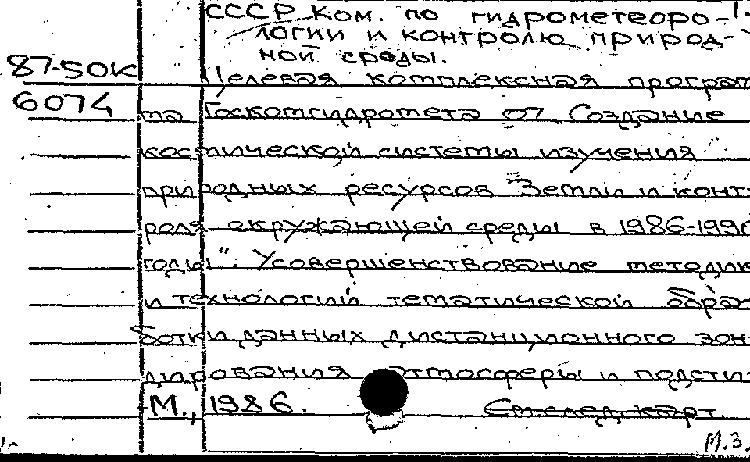 СССР. Ком. по гидрометеоро- 1.
логии и контролю природ-
ной среды.
87-50К Целевая комплексная програм
6074 ма Госкомгидромета 07 "Создание
космической системы изучения
природных ресурсов Земли и конт
роля окружающей среды в 1986-1990
годы". Усовершенствование методик
и технологий тематической обра
ботки данных дистанционного зон
дирования атмосферы и подсти
М., 1986. См. след. карт.
М.З.